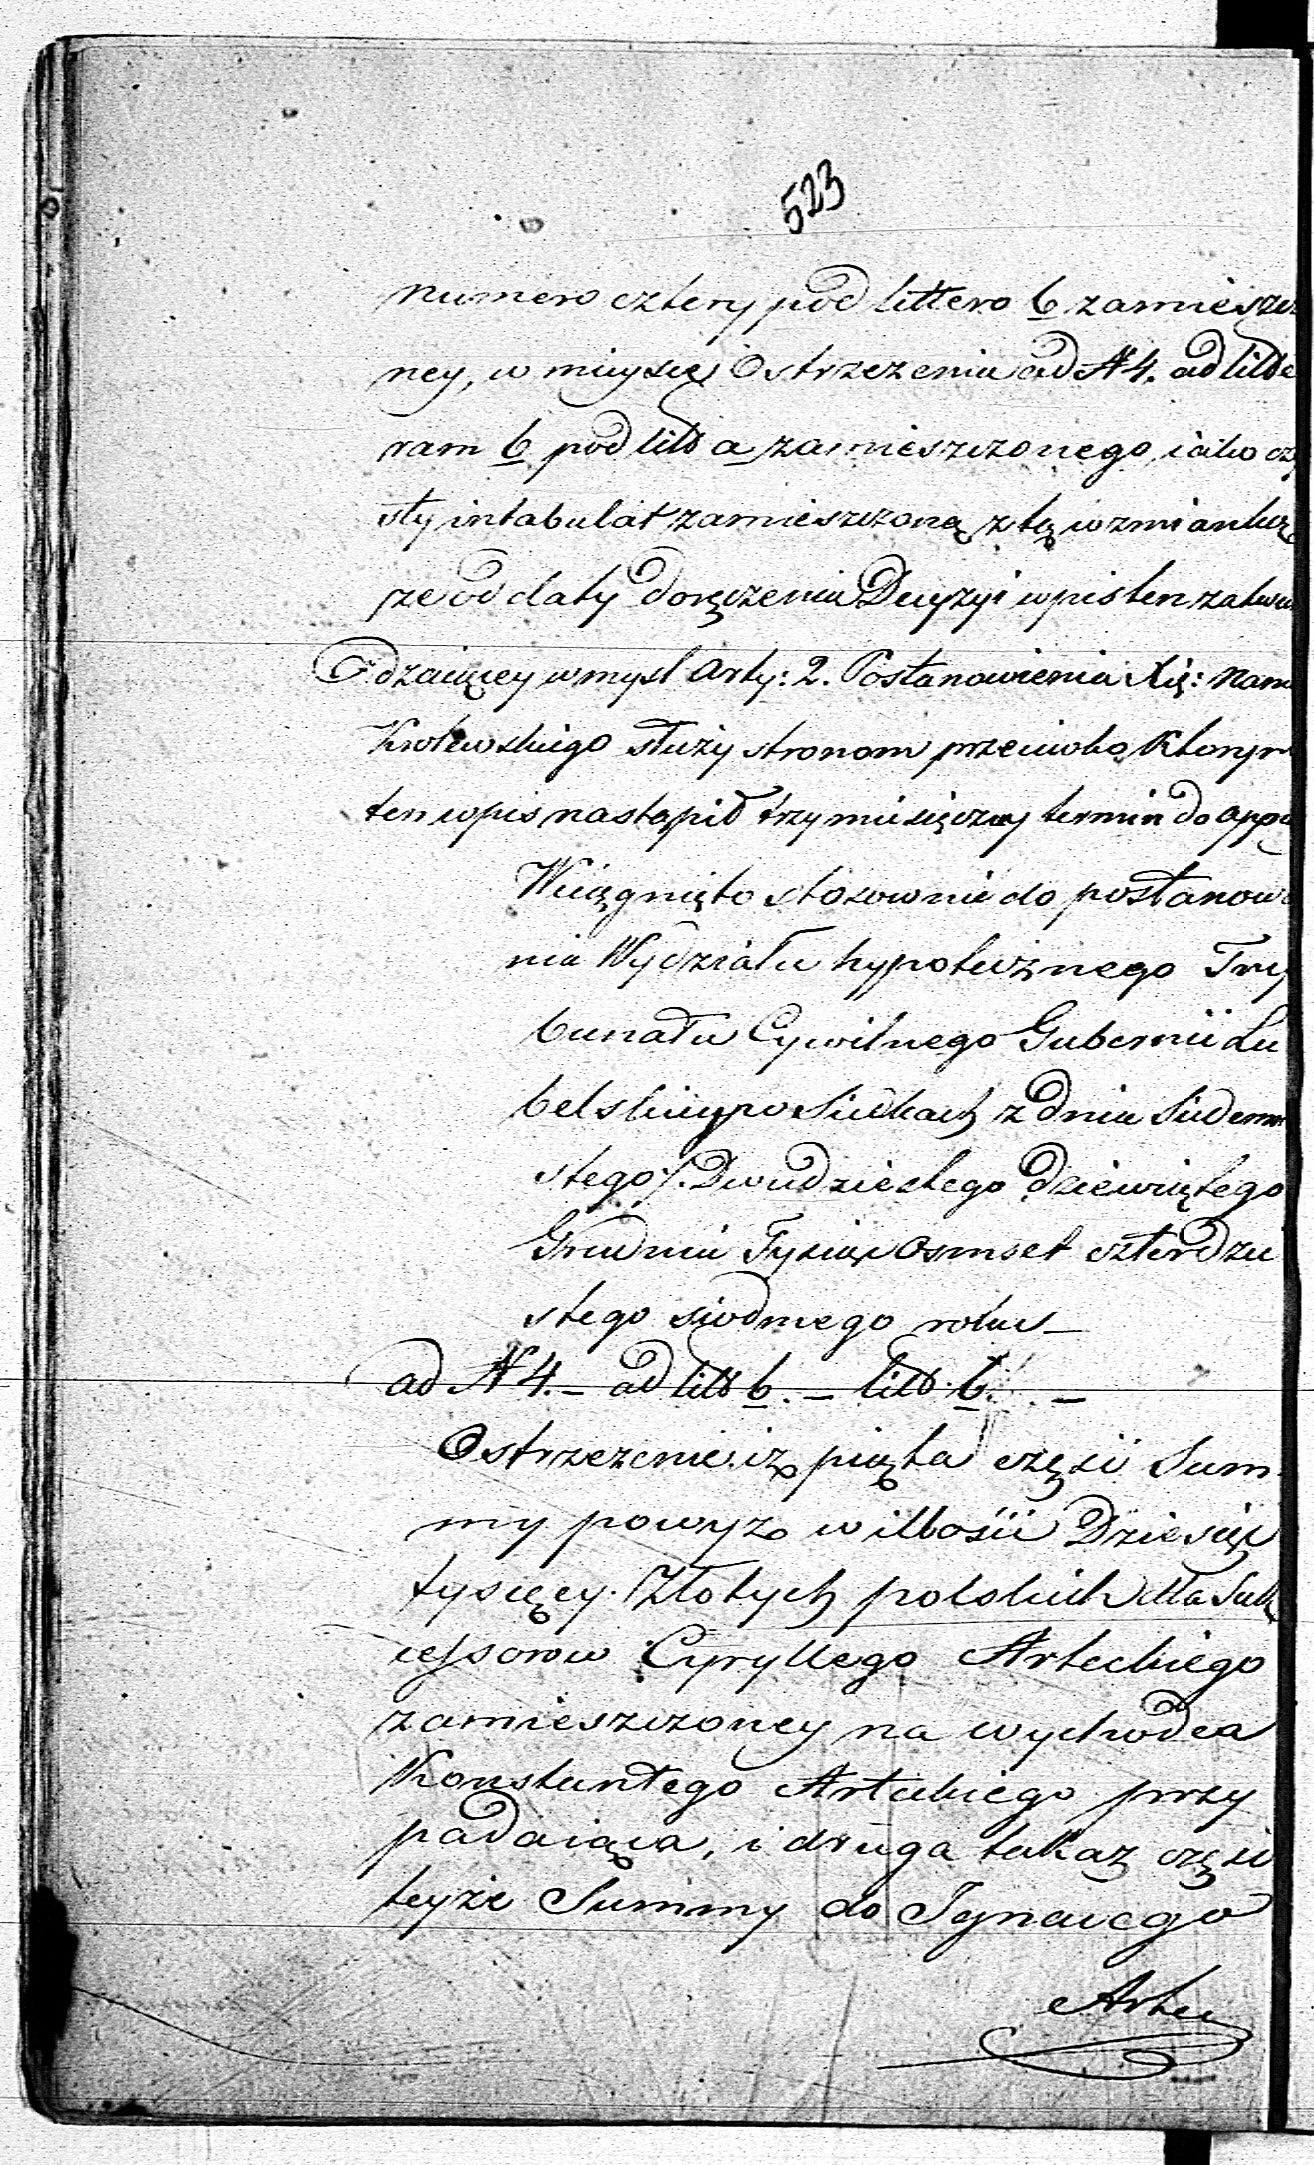 523
numero cztery pod littero b zamieszcz
ney, w mieysce Ostrzeżenia ad N 4. ad litte
ram b pod litt a zamieszczonego, iako czy
sty intabulat zamieszczoną z tą wzmianką
że od daty doręczenia Decyzyi wpis ten zatwier
dzaiącey w myśl Arty: 2. Postanowienia Xię: Nam
Krolewskiego służy stronom przeciwko ktorym
ten wpis nastąpił trzymiesięczny termin do appe
Wciągnięto stosownie do postanowie
nia Wydziału hypotecznego Try
bunału Cywilnego Gubernii Lu
belskiey w Siedlcach z dnia Siedemna
stego/. Dwudziestego dziewiątego
Grudnia Tysiąc Osmset czterdzie
stego siodmego roku_
ad N 4. – ad litt b. – litt. b. –
Ostrzeżenie iż piąta części Sum
my powyż w illości Dziesięć
tysięcy Złotych polskich dla Suk
cessorow Cyryllego Arteckiego
zamieszczoney na wychodca
Konstantego Arteckiego przy
padaiąca, i druga takaż części
teyże Summy do Ignacego
Artec